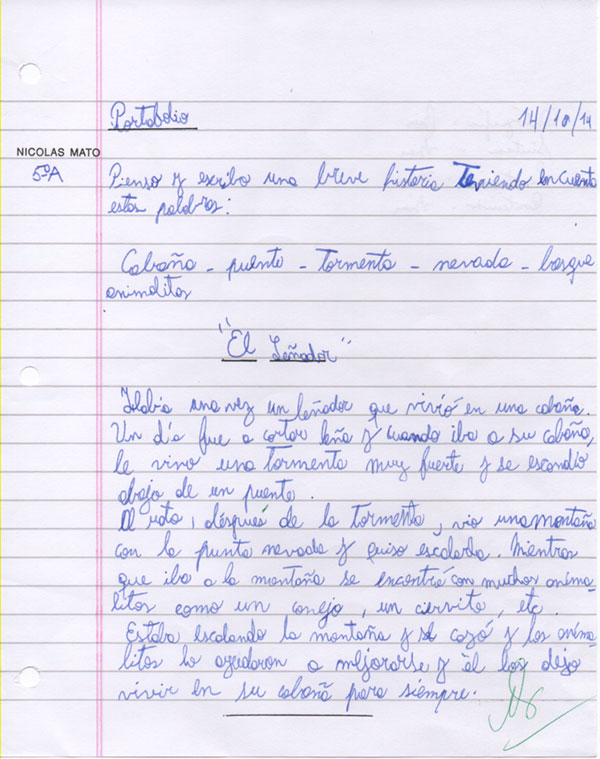 Portobolio 14/10/14
NICOLAS MATO
5ºA
Pienso y escribo una breve historia Teniendo en cuenta
estas palabras:
Cabaña - puente - Tormenta - nevada - bosque
animalitos
"El Leñador"
Había una vez un leñador que vivió en una cabaña.
Un día fue a cortar leña y cuando iba a su cabaña,
le vino una Tormenta muy fuerte y se escondio
abajo de un puente.
Al rato, después de la Tormenta, vio una montaña
con la punta nevada y quiso escalarla. Mientras
que iba a la montaña se encontró con muchos anima-
litos como un conejo, un ciervito, etc.
Estaba escalando la montaña y se cayó y los anima-
litos lo ayudaron a mejorarse y él los dejo
vivir en su cabaña para siempre.